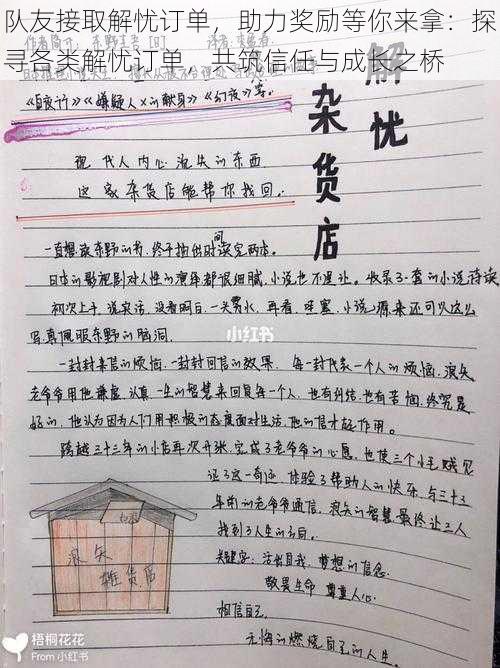 队友接取解忧订单，助力奖励等你来拿：探
寻各类解忧订单，共筑信任与成长之桥
解忧
杂货店
《白夜行》《嫌疑人X的献身》《幻夜》等.
现代人内心流失的东西
这家杂货店能帮你找回.
一直想读东野的书，终于抽时间读完两本.
日本的影视剧对人性的演绎都很细腻，小说也不逊让。收录了一套的小说待读
初次上手，说实话，没看明白，一头雾水，再看，哇塞，小说原来还可以这么
写，真佩服东野的脑洞.
一封封来信的烦恼，一封封回信的效果，每一封代表一个人的烦恼，浪矢
老爷爷用他谦虚、认真一生的智慧来回复每一个人，也有纠结，也有苦恼，终究是
好的，他认为因为人们用积极的态度面对生活，他的信才能作用。
跨越三十三年的小店再次开张，完成了老爷爷的心愿，也使三个小毛贼见
证了这一奇迹，体验了帮助人的快乐，与三十三
年前的老爷爷通信，浪矢的智慧最终让三人
找到了人生的方向.
关键字：活出自我，梦想的信念.
敬畏生命 尊重人心.
相信自己
无悔的燃烧自己的人生
浪矢
雜貨店
小红书
梧桐花花
From 小红书